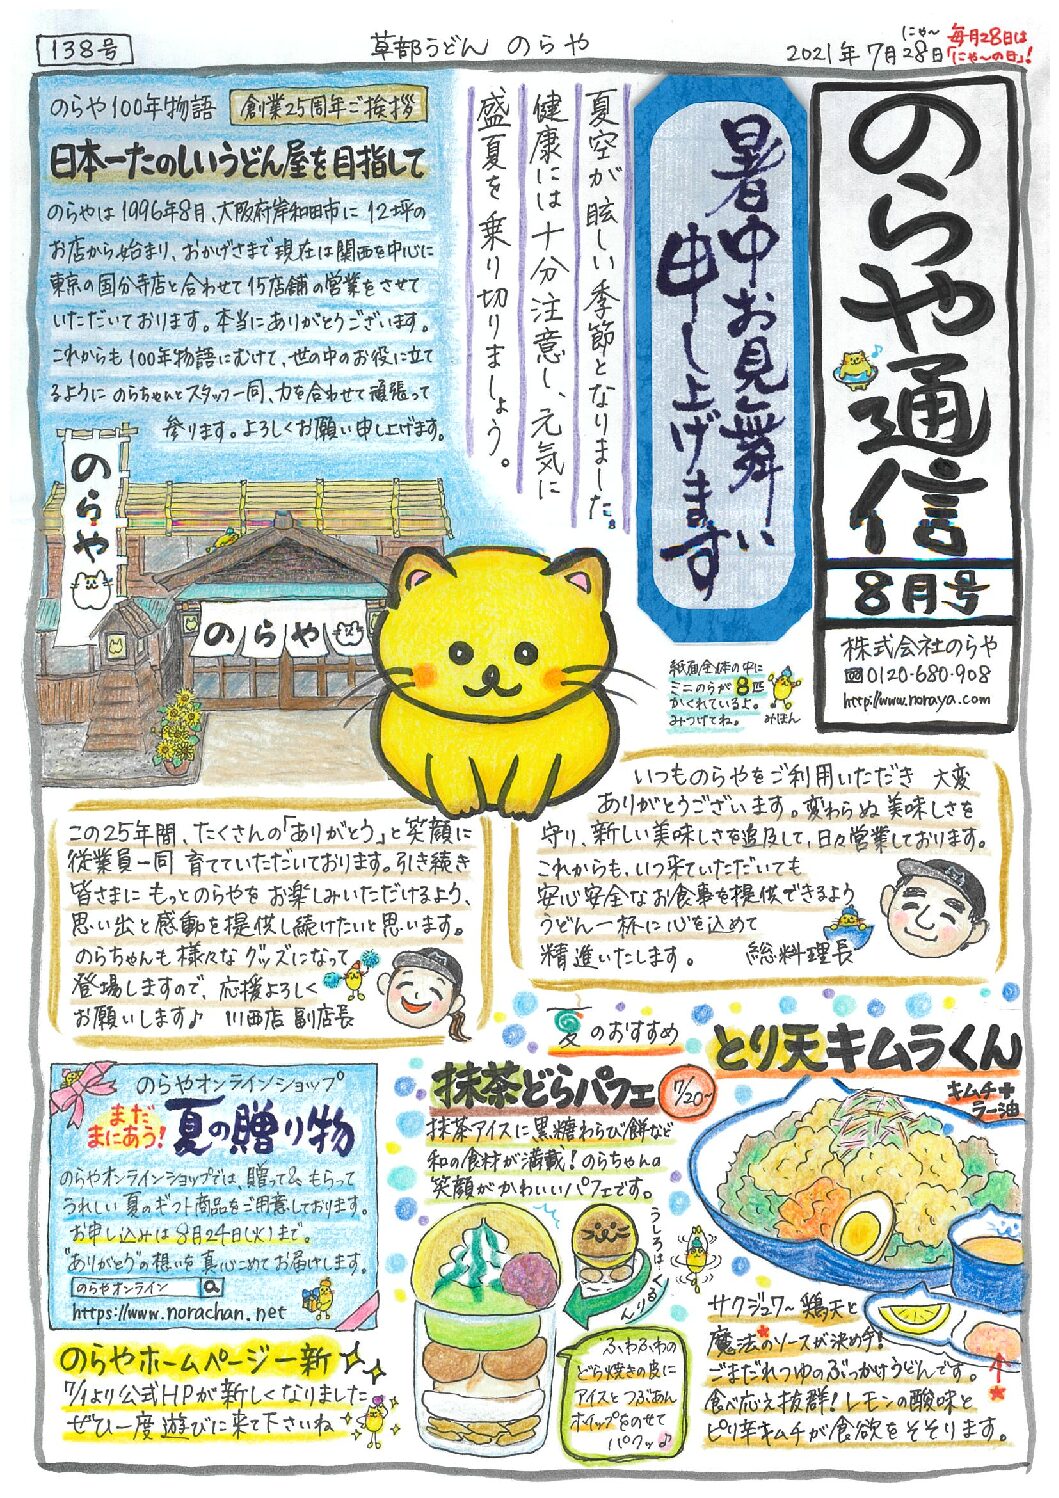 138号
草部うどん のらや
にゃ〜
2021年7月28日
毎月28日は
「にゃ〜の日」!
のらや通信
8月号
株式会社のらや
0120-680-908
http://www.noraya.com
暑中お見舞い
申し上げます
夏空が眩しい季節となりました。
健康には十分注意し、元気に
盛夏を乗り切りましょう。
のらや100年物語
創業25周年ご挨拶
日本一たのしいうどん屋を目指して
のらやは1996年8月、大阪府岸和田市に12坪の
お店から始まり、おかげさまで現在は関西を中心に
東京の国分寺店と合わせて15店舗の営業をさせて
いただいております。本当にありがとうございます。
これからも100年物語にむけて、世の中のお役に立て
るようにのらちゃんとスタッフ一同、力を合わせて頑張って
参ります。よろしくお願い申し上げます。
のらや
のらや
紙面全体の中に
ミニのらが8匹
かくれているよ。
みつけてね。
みほん
いつものらやをご利用いただき 大変
ありがとうございます。変わらぬ美味しさを
守り、新しい美味しさを追及して、日々営業しております。
これからも、いつ来ていただいても
安心安全なお食事を提供できるよう
うどん一杯に心を込めて
精進いたします。 総料理長
この25年間、たくさんの「ありがとう」と笑顔に
従業員一同 育てていただいております。引き続き
皆さまに もっとのらやを お楽しみいただけるよう、
思い出と感動を提供し続けたいと思います。
のらちゃんも様々なグッズになって
登場しますので、応援よろしく
お願いします♪ 川西店 副店長
のらやオンラインショップ
まだ
まにあう!
夏の贈り物
のらやオンラインショップでは、贈っても もらって
うれしい 夏のギフト商品をご用意しております。
お申し込みは8月24日(火)まで。
"ありがとう"の想いを真心こめてお届けします。
のらやオンライン
https://www.norachan.net
のらやホームページ一新
7/1より公式HPが新しくなりました
ぜひ一度遊びに来て下さいね
夏のおすすめ
抹茶どらパフェ
7/20~
抹茶アイスに黒糖わらび餅など
和の食材が満載!のらちゃんの
笑顔がかわいいパフェです。
うしろはくるりん
ふわふわの
どら焼きの皮に
アイスとつぶあん
ホイップをのせて
パクッ♪
とり天キムラくん
キムチ+
ラー油
サクジュワ〜鶏天と
魔法*のソースが決め手!
ごまだれつゆのぶっかけうどんです。
食べ応え抜群!レモンの酸味と
ピリ辛キムチが食欲をそそります。